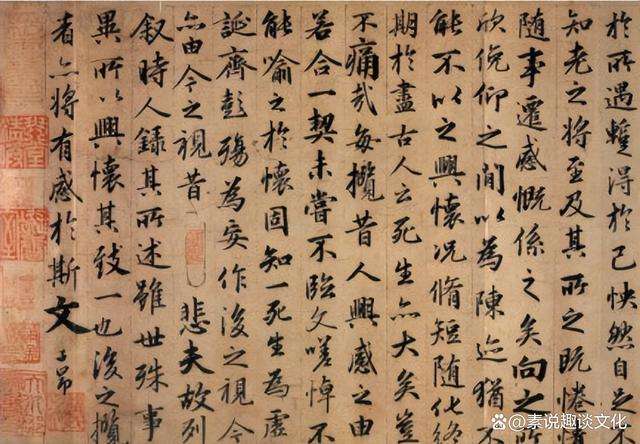 於所遇蹔得於己快然自足不
知老之将至及其所之既惓
随事遷感慨係之矣向之所
欣俛仰之閒以為陳迹猶不
能不以之興懷况脩短随化終
期於盡古人云死生亦大矣豈
不痛哉每攬昔人興感之由
若合一契未嘗不臨文嗟悼不
能喻之於懷固知一死生為虚
誕齊彭殤為妄作後之視今
亦由今之視昔 悲夫故列
叙時人録其所述雖世殊事
異所以興懷其致一也後之攬
者亦将有感於斯文 子昂
@素说趣谈文化